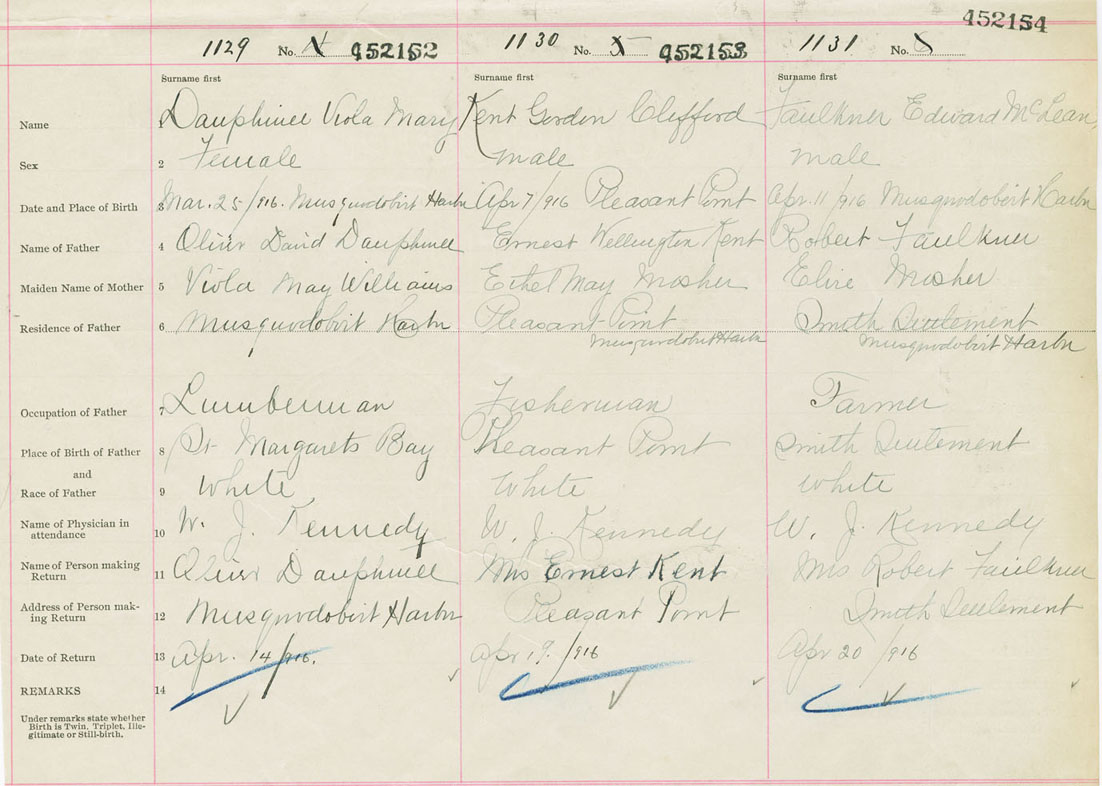 452154
1129 No. 452152 1130 No. 5 452153 1131 No.
Surname first Surname first Surname first
Name 1 Dauphinee Viola Mary Kent Gordon Clifford Faulkner Edward McLean
Sex 2 Female male male
Date and Place of Birth 3 Mar. 25/916. Musquodobirt Harbr Apr 7/916 Pleasant Point Apr. 11/916 Musquodobirt Harbr
Name of Father 4 Oliver David Dauphinee Ernest Wellington Kent Robert Faulkner
Maiden Name of Mother 5 Viola May Williams Ethel May Mosher Mosher
Residence of Father 6 Musquodobirt Harbr Pleasant Point Smith Settlement
Musquodobirt Harbr Musquodobirt Harbr
Occupation of Father 7 Lumberman Fisherman Farmer
Place of Birth of Father 8 St Margarets Bay Pleasant Point Smith Settlement
and
Race of Father 9 White White White
Name of Physician in
attendance 10 W. J. Kennedy W. J. Kennedy W. J. Kennedy
Name of Person making
Return 11 Oliver Dauphinee Mrs Ernest Kent Mrs Robert Faulkner
Address of Person mak-
ing Return 12 Musquodobirt Harbr Pleasant Point Smith Settlement
Date of Return 13 Apr. 14/916. Apr 19/916 Apr 20/916
REMARKS 14
Under remarks state whether
Birth is Twin, Triplet, Ille-
gitimate or Still-birth.